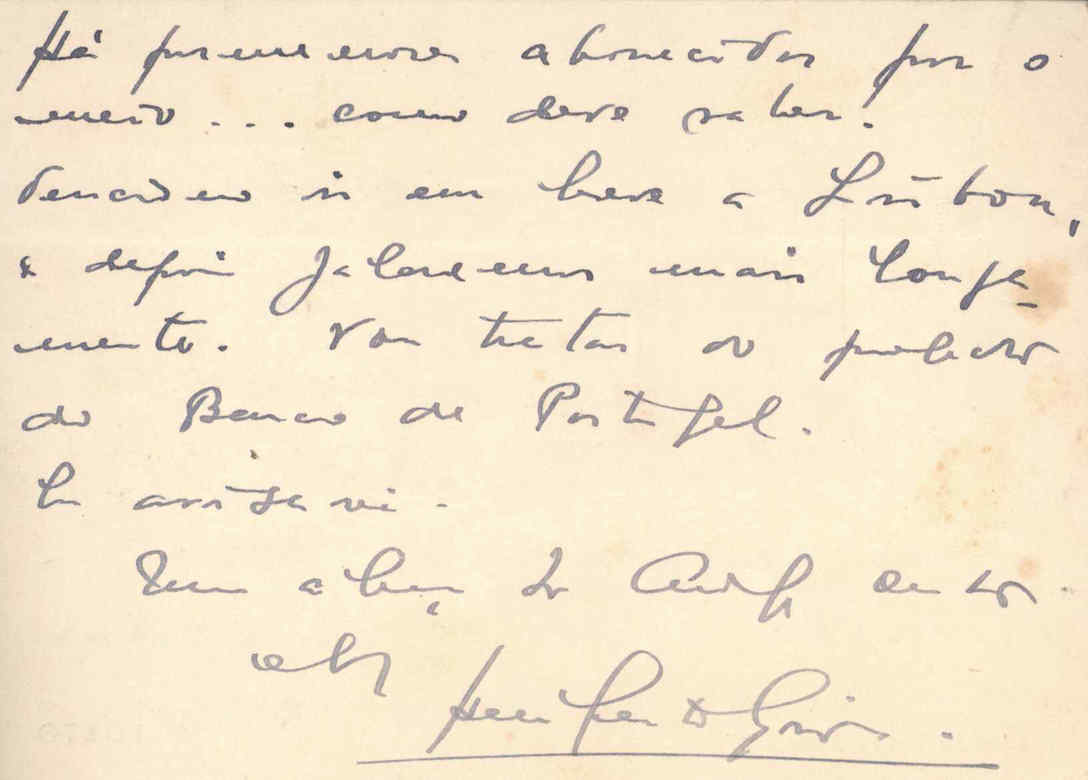 Há pormenores aborrecidos por o
meio... como deve saber.
Tenciono ir em breve a Lisboa,
e depois falaremos mais longa-
mente. Vou tratar do
do Banco de Portugal.
Eu avisarei.
Um abraço do